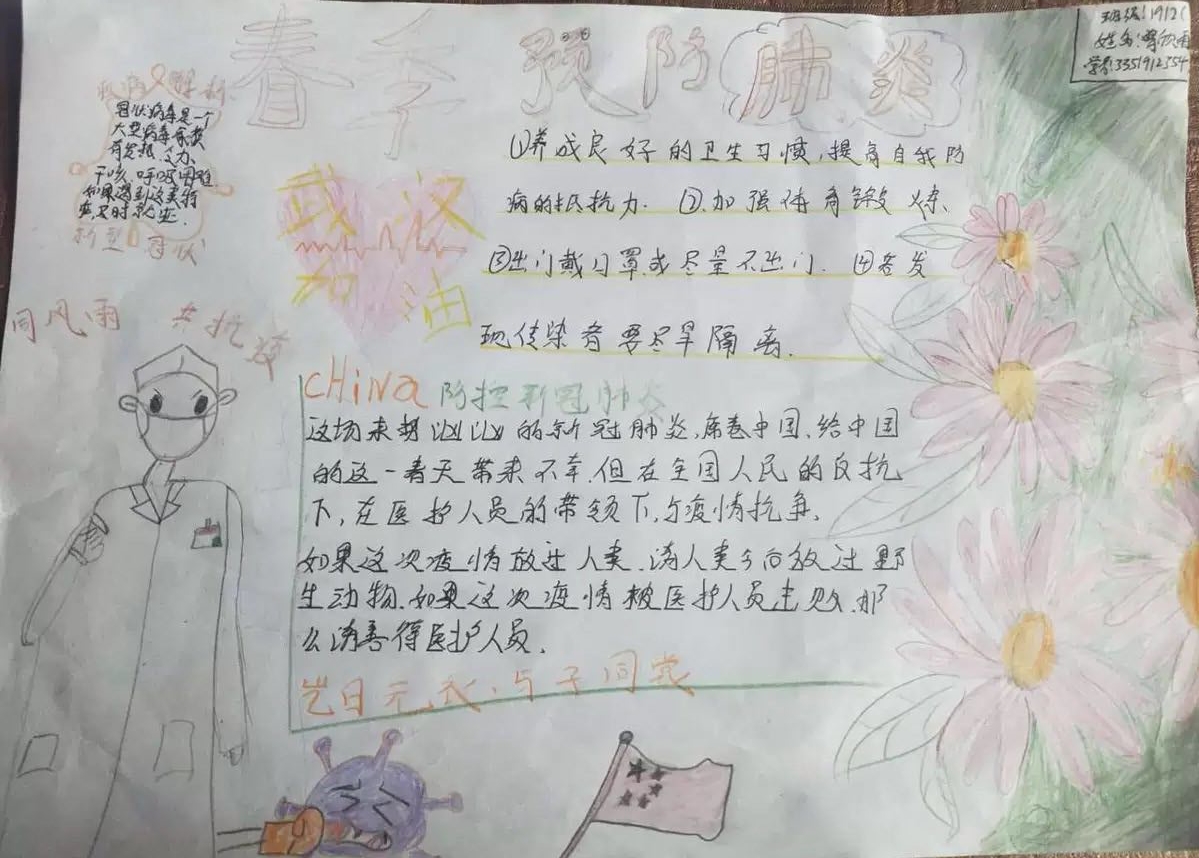 春季预防肺炎
班级:1912(
姓名:
学号:3351912354
冠状病毒是一个
大型病毒家族
有发热、乏力、
干咳、呼吸困难
如果遇到这类特
征及时就医.
新型冠状
武汉
加油
①养成良好的卫生习惯,提高自我防
病的抵抗力. ②.加强体育锻炼、
③出门戴口罩或尽量不出门. ④若发
现传染者要尽早隔离.
同风雨 共抗疫
CHiNa 防控新冠肺炎
这场来势汹汹的新冠肺炎,席卷中国、给中国
的这一春天带来不幸.但在全国人民的反抗
下,在医护人员的带领下,与疫情抗争、
如果这次疫情放过人类、请人类今后放过野
生动物.如果这次疫情被医护人员击败、那
么请善待医护人员.
岂曰无衣·与子同裳